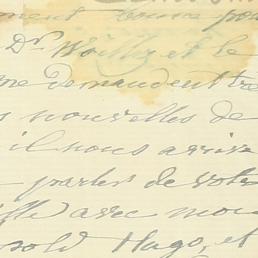 ment
Dr Woillez et le
me demandent tre
nouvelles de
il nous arrive
parler de votre
avec nous
Hugo, et